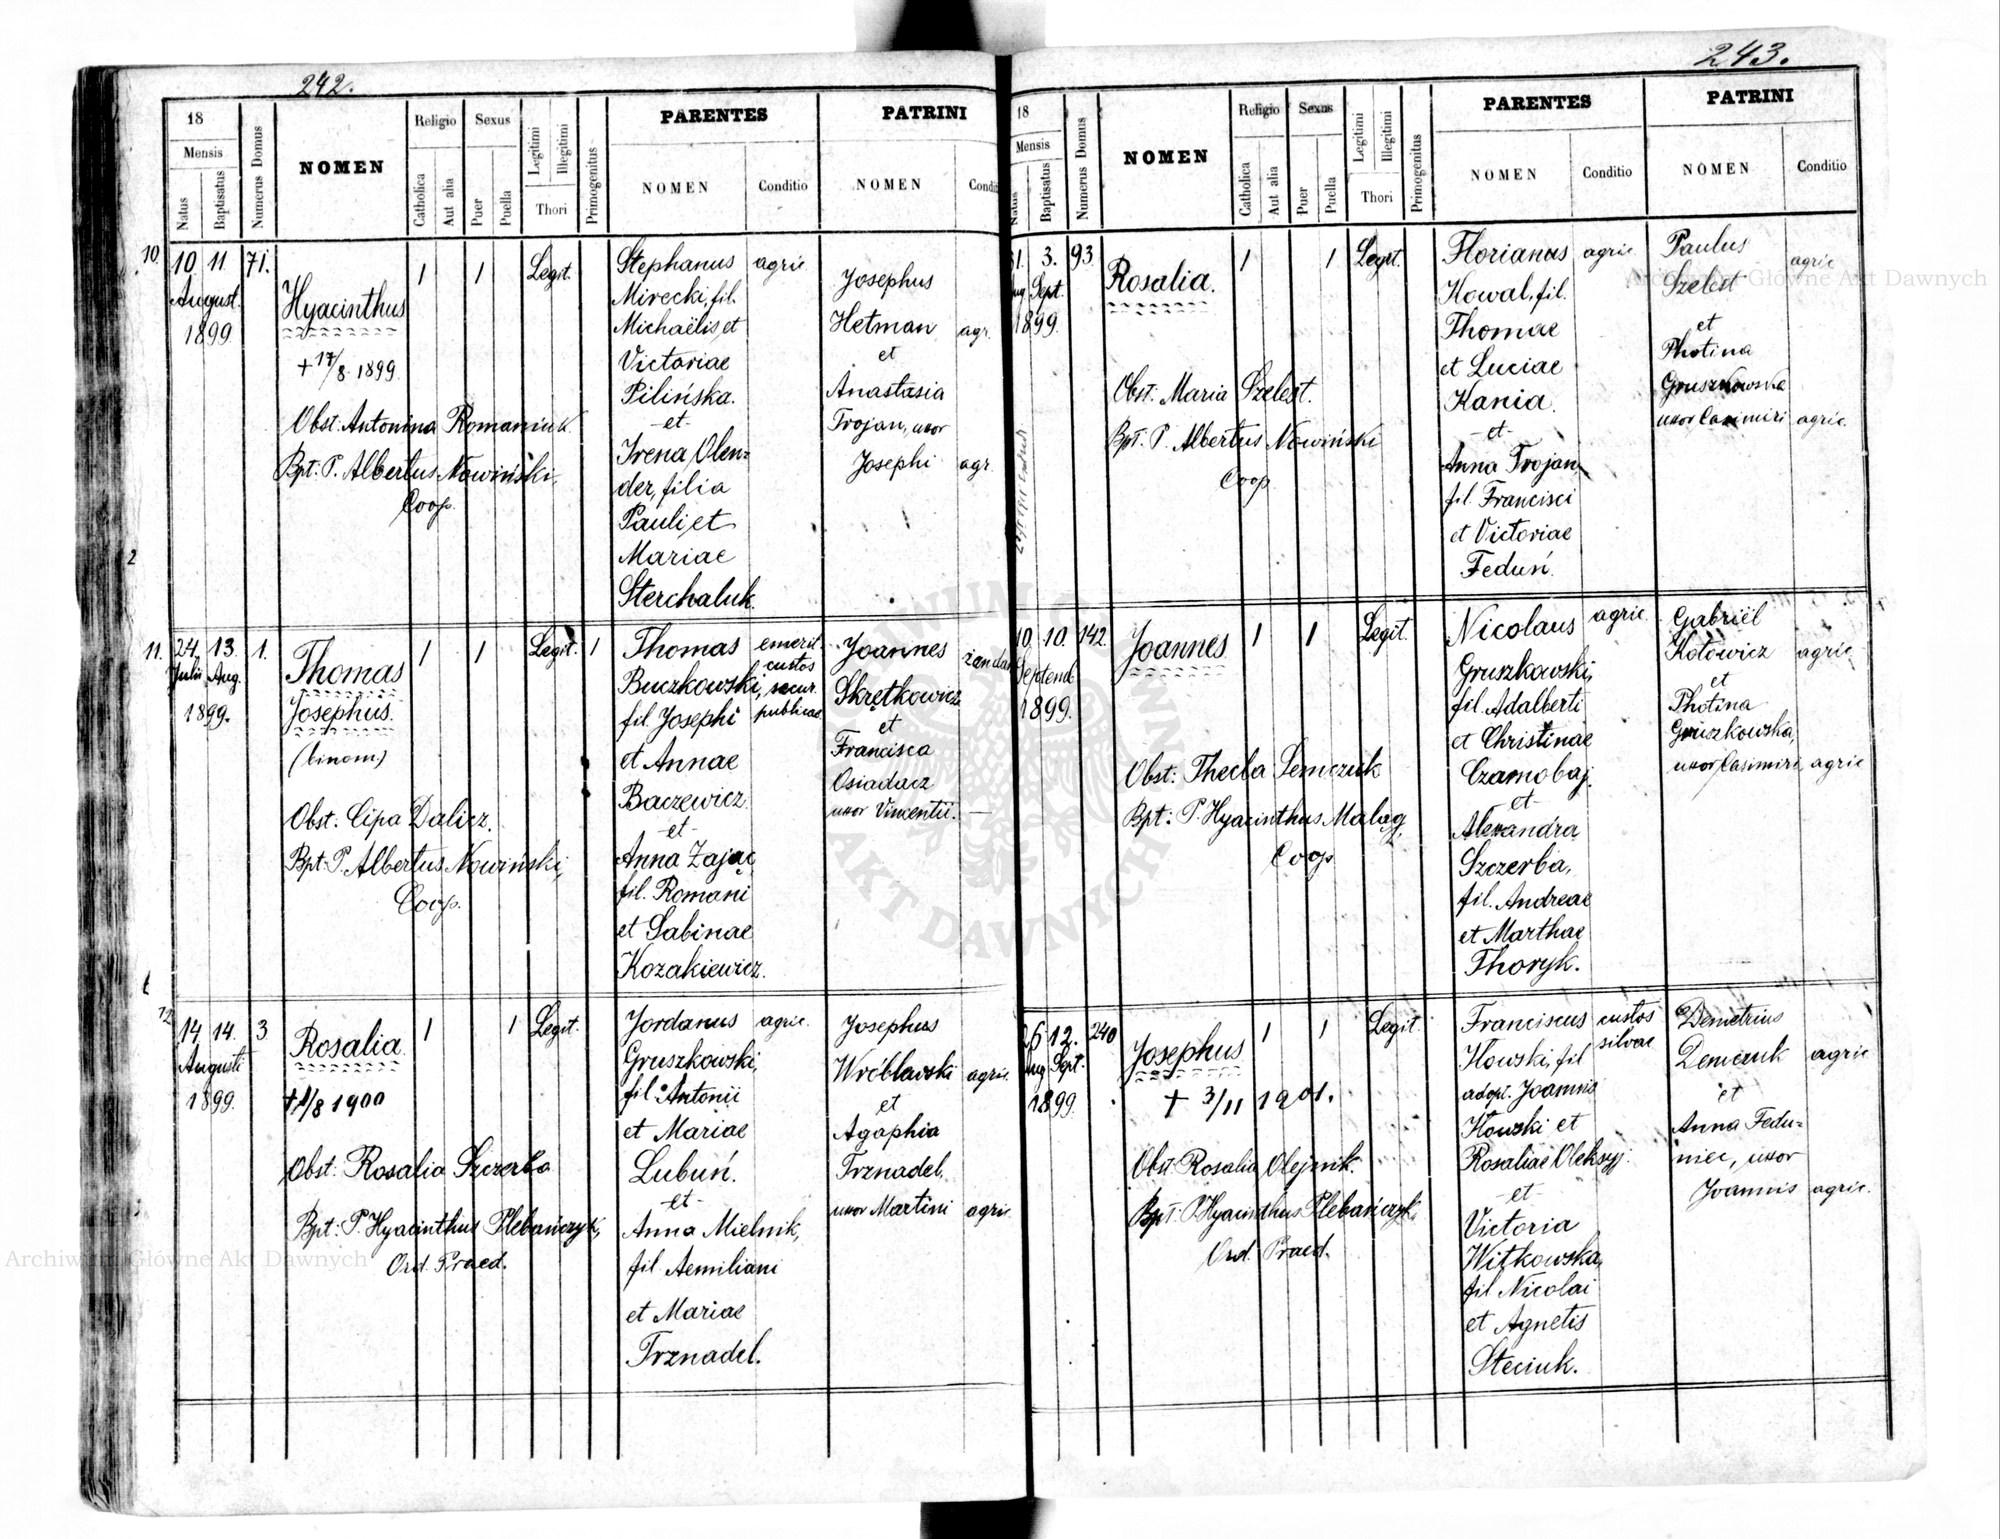 242.
18
Mensis
Natus
Baptisatus
Numerus Domus
NOMEN
Religio
Catholica
Aut alia
Sexus
Puer
Puella
Legitimi
Illegitimi
Thori
Primogenitus
PARENTES
NOMEN
Conditio
PATRINI
NOMEN
10.
10 11 71.
August.
1899
Hyacinthus
+ 17/8 1899
Obst. Antonina Romaniuk
Bpt. P. Albertus Nowiński
Coop.
1 1 Legit.
Stephanus agric
Mirecki, fil.
Michaëlis et
Victoriae
Pilińska.
et
Irena Olen=
der, filia
Pauli et
Mariae
Sterchaluk.
Josephus
Hetman agr.
et
Anastasia
Trojan, uxor
Josephi agr.
11.
24 13 1.
Julii Aug.
1899.
Thomas
Josephus.
(binom)
Obst: Cipa Dalicz.
Bpt: P. Albertus Nowiński,
Coop.
1 1 Legit. 1
Thomas emerit.
Buczkowski, custos
secur.
fil. Josephi publicae
et Annae
Baczewicz.
et
Anna Zając,
fil. Romani
et Sabinae
Kozakiewicz.
Joannes
Skrętkowicz
et
Francisca
Osiadacz
uxor Vincentii. —
12
14 14. 3
Augusti
1899.
Rosalia
1900
Obst: Rosalia Szczerba
Bpt: P. Hyacinthus Plebańczyk,
Ord. Praed.
1 1 Legit.
Jordanus agric.
Gruszkowski,
fil. Antonii
et Mariae
Lubuń.
et
Anna Mielnik,
fil Aemiliani
et Mariae
Trznadel.
Josephus
Wróblewski agric.
et
Agaphia
Trznadel,
uxor Martini agric.
243.
18
Mensis
Natus
Baptisatus
Numerus Domus
NOMEN
Religio
Catholica
Aut alia
Sexus
Puer
Puella
Legitimi
Illegitimi
Thori
Primogenitus
PARENTES
NOMEN
Conditio
PATRINI
NOMEN
Conditio
3. 93
Sept.
1899.
Rosalia.
Obst. Maria Szelest.
Bpt. P. Albertus Nowiński
Coop
1 1 Legit.
Florianus agric
Kowal, fil.
Thomae
et Luciae
Kania.
et
Anna Trojan
fil. Francisci
et Victoriae
Feduń.
Paulus agric
Szelest
et
Photina
Gruszkowska
uxor Casimiri agric.
10 10. 142.
Septemb
1899.
Joannes
Obst: Thecla Semczuk
Bpt: P. Hyacinthus Małag,
Coop
1 1 Legit.
Nicolaus agric
Gruszkowski,
fil. Adalberti
et Christinae
Czarnobaj.
et
Alexandra
Szczerba,
fil. Andreae
et Marthae
Thoryk.
Gabriël
Kotowicz agric
et
Photina
Gruszkowska,
uxor Casimiri agric
26 12. 240
Aug Sept.
1899.
Josephus
+ 3/11 1901.
Obst. Rosalia Olejnik.
Bpt. P. Hyacinthus Plebańczyk,
Ord. Praed.
1 1 Legit
Franciscus custos
silvae
Howski, fil
adopt. Joannis
Howski et
Rosaliae Oleksyj.
et
Victoria
Witkowska,
fil Nicolai
et Agnetis
Steciuk.
Demetrius
Demczuk agric
et
Anna Fedu=
niec, uxor
Joannis agric.
Archiwum Główne Akt Dawnych
Archiwum Główne Akt Dawnych
ARCHIWUM GŁÓWNE AKT DAWNYCH